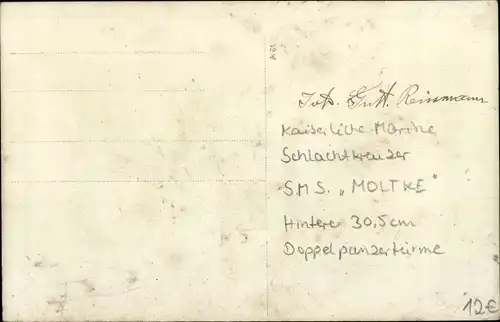 Kaiserliche Marine
Schlachtkreuzer
S.M.S. „MOLTKE"
Hintere 30,5cm
Doppelpanzertürme
12€